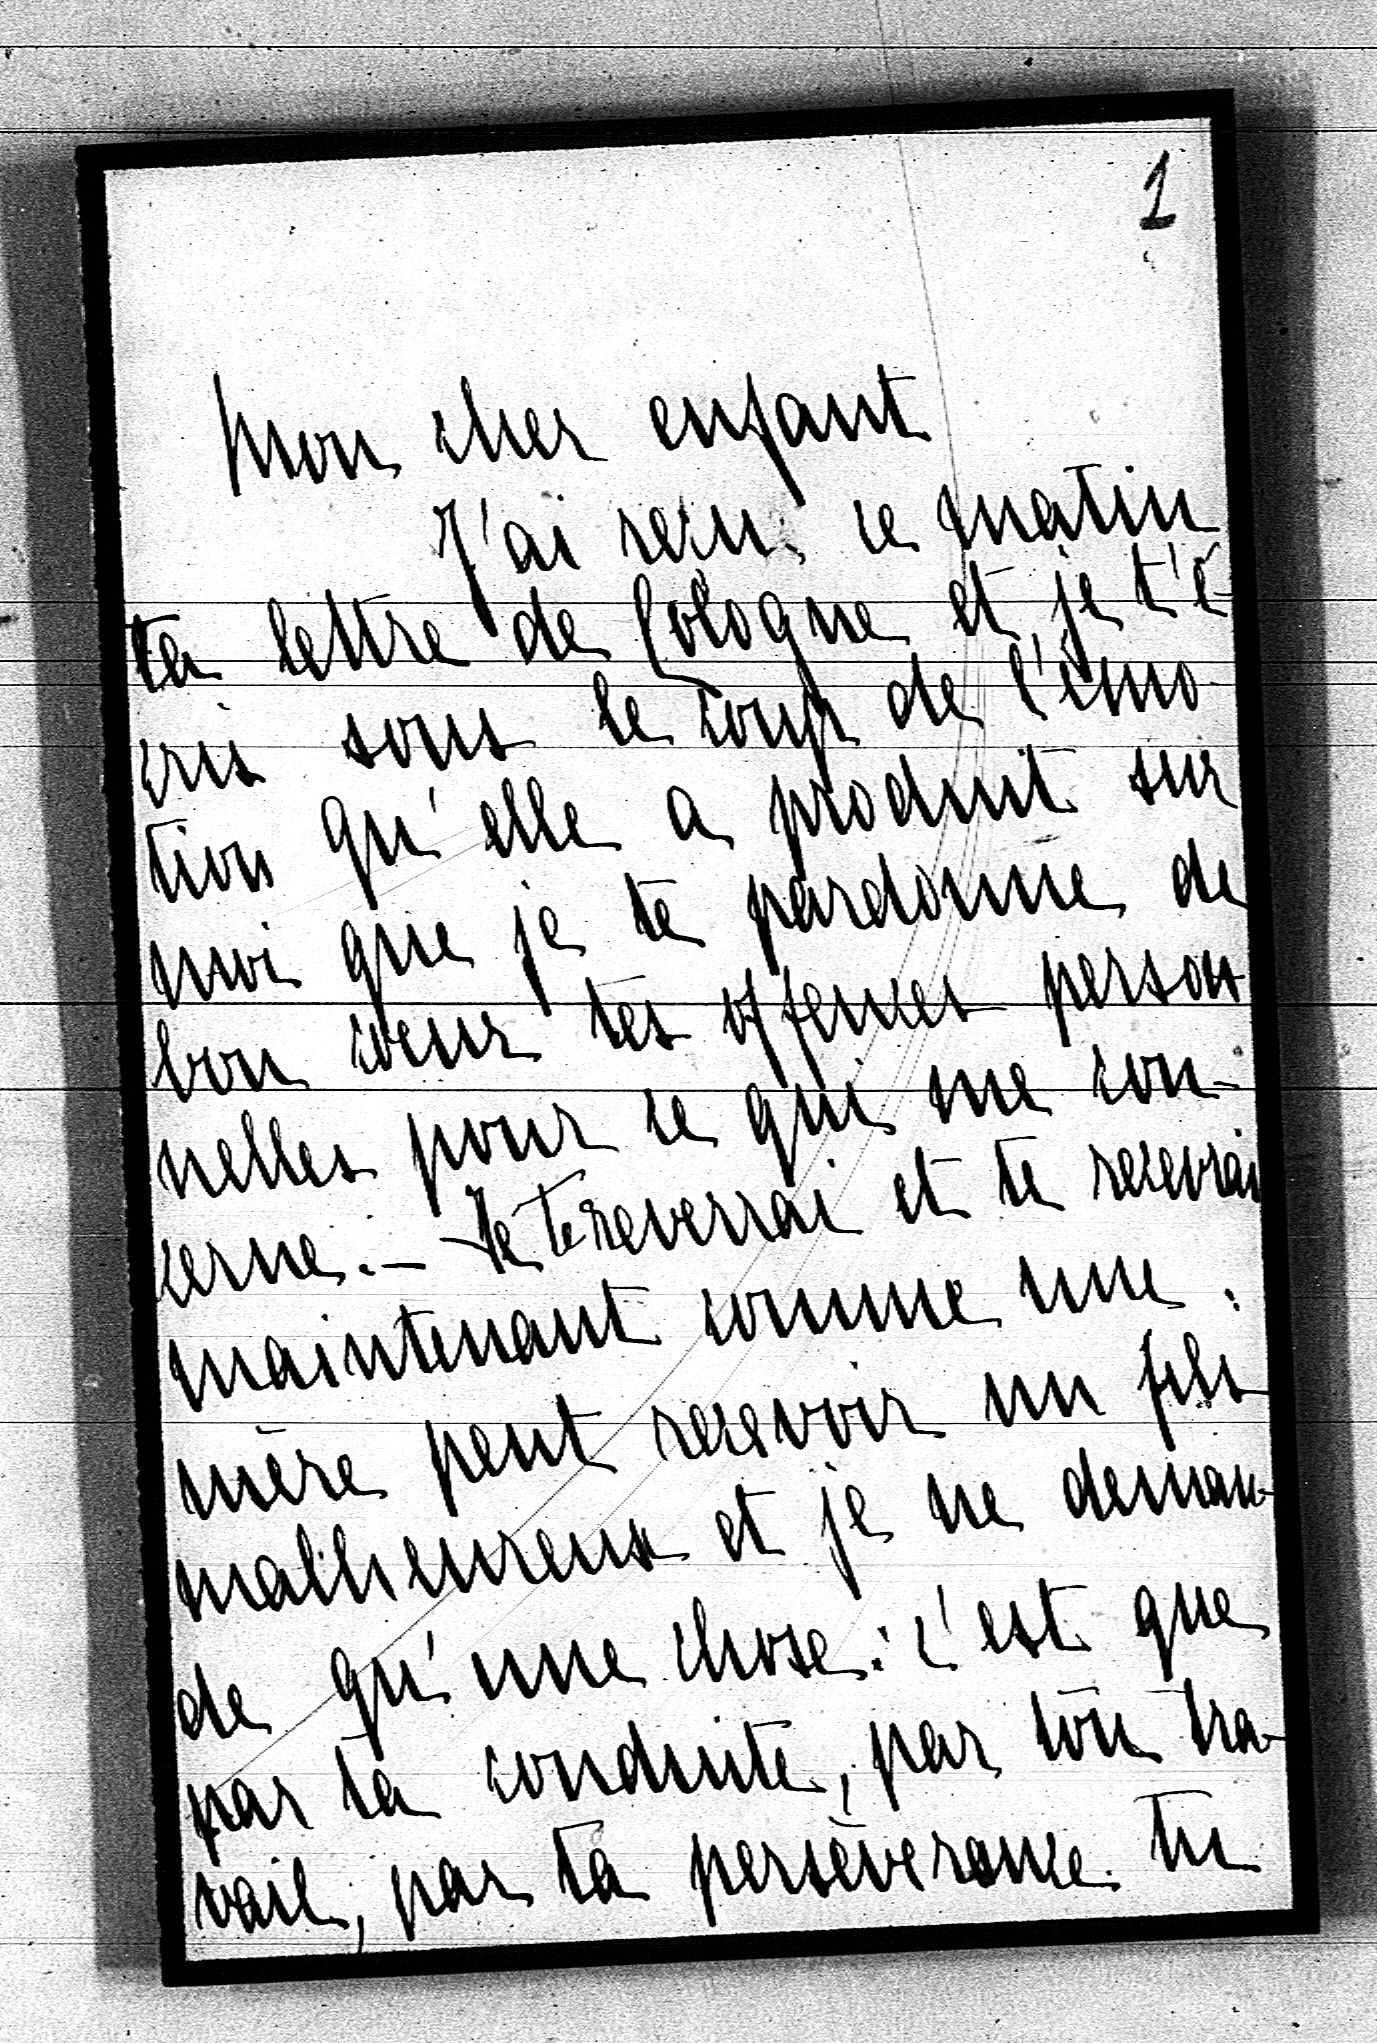 1
Mon cher enfant
J'ai reçu ce matin
ta lettre de Cologne et je t'é
cris sous le coup de l'émo
tion qu'elle a produit sur
moi que je te pardonne de
bon cœur tes offenses person
nelles pour ce qui me con-
cerne. — Je te reverrai et te recevrai
maintenant comme une
mère peut recevoir un fils
malheureux et je ne deman-
de qu'une chose: c'est que
par ta conduite, par ton tra-
vail, par ta persévérance tu